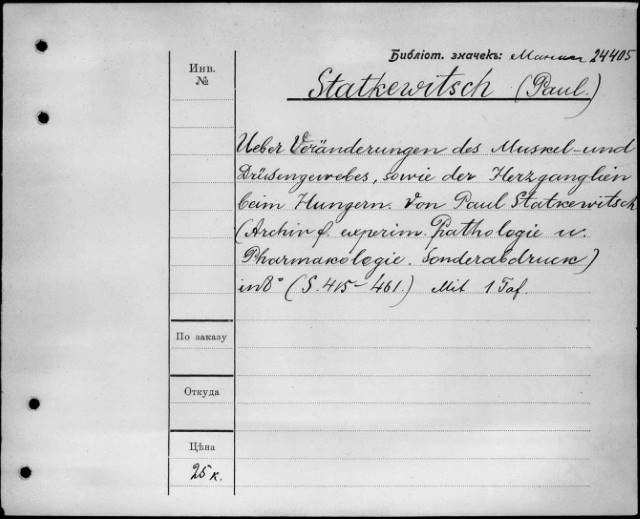 Библіот. значекъ: 24405
Инв.
№
Statkewitsch (Paul.)
Ueber Veränderungen des Muskel-und
Drüsengewebes, sowie der Herzganglien
beim Hungern. Von Paul Statkewitsch
(Archiv f. experim. Pathologie u.
Pharmakologie. Sonderabdruck)
in 8° (S. 415-461.) Mit 1 Taf.
По заказу
Откуда
Цѣна
25 к.